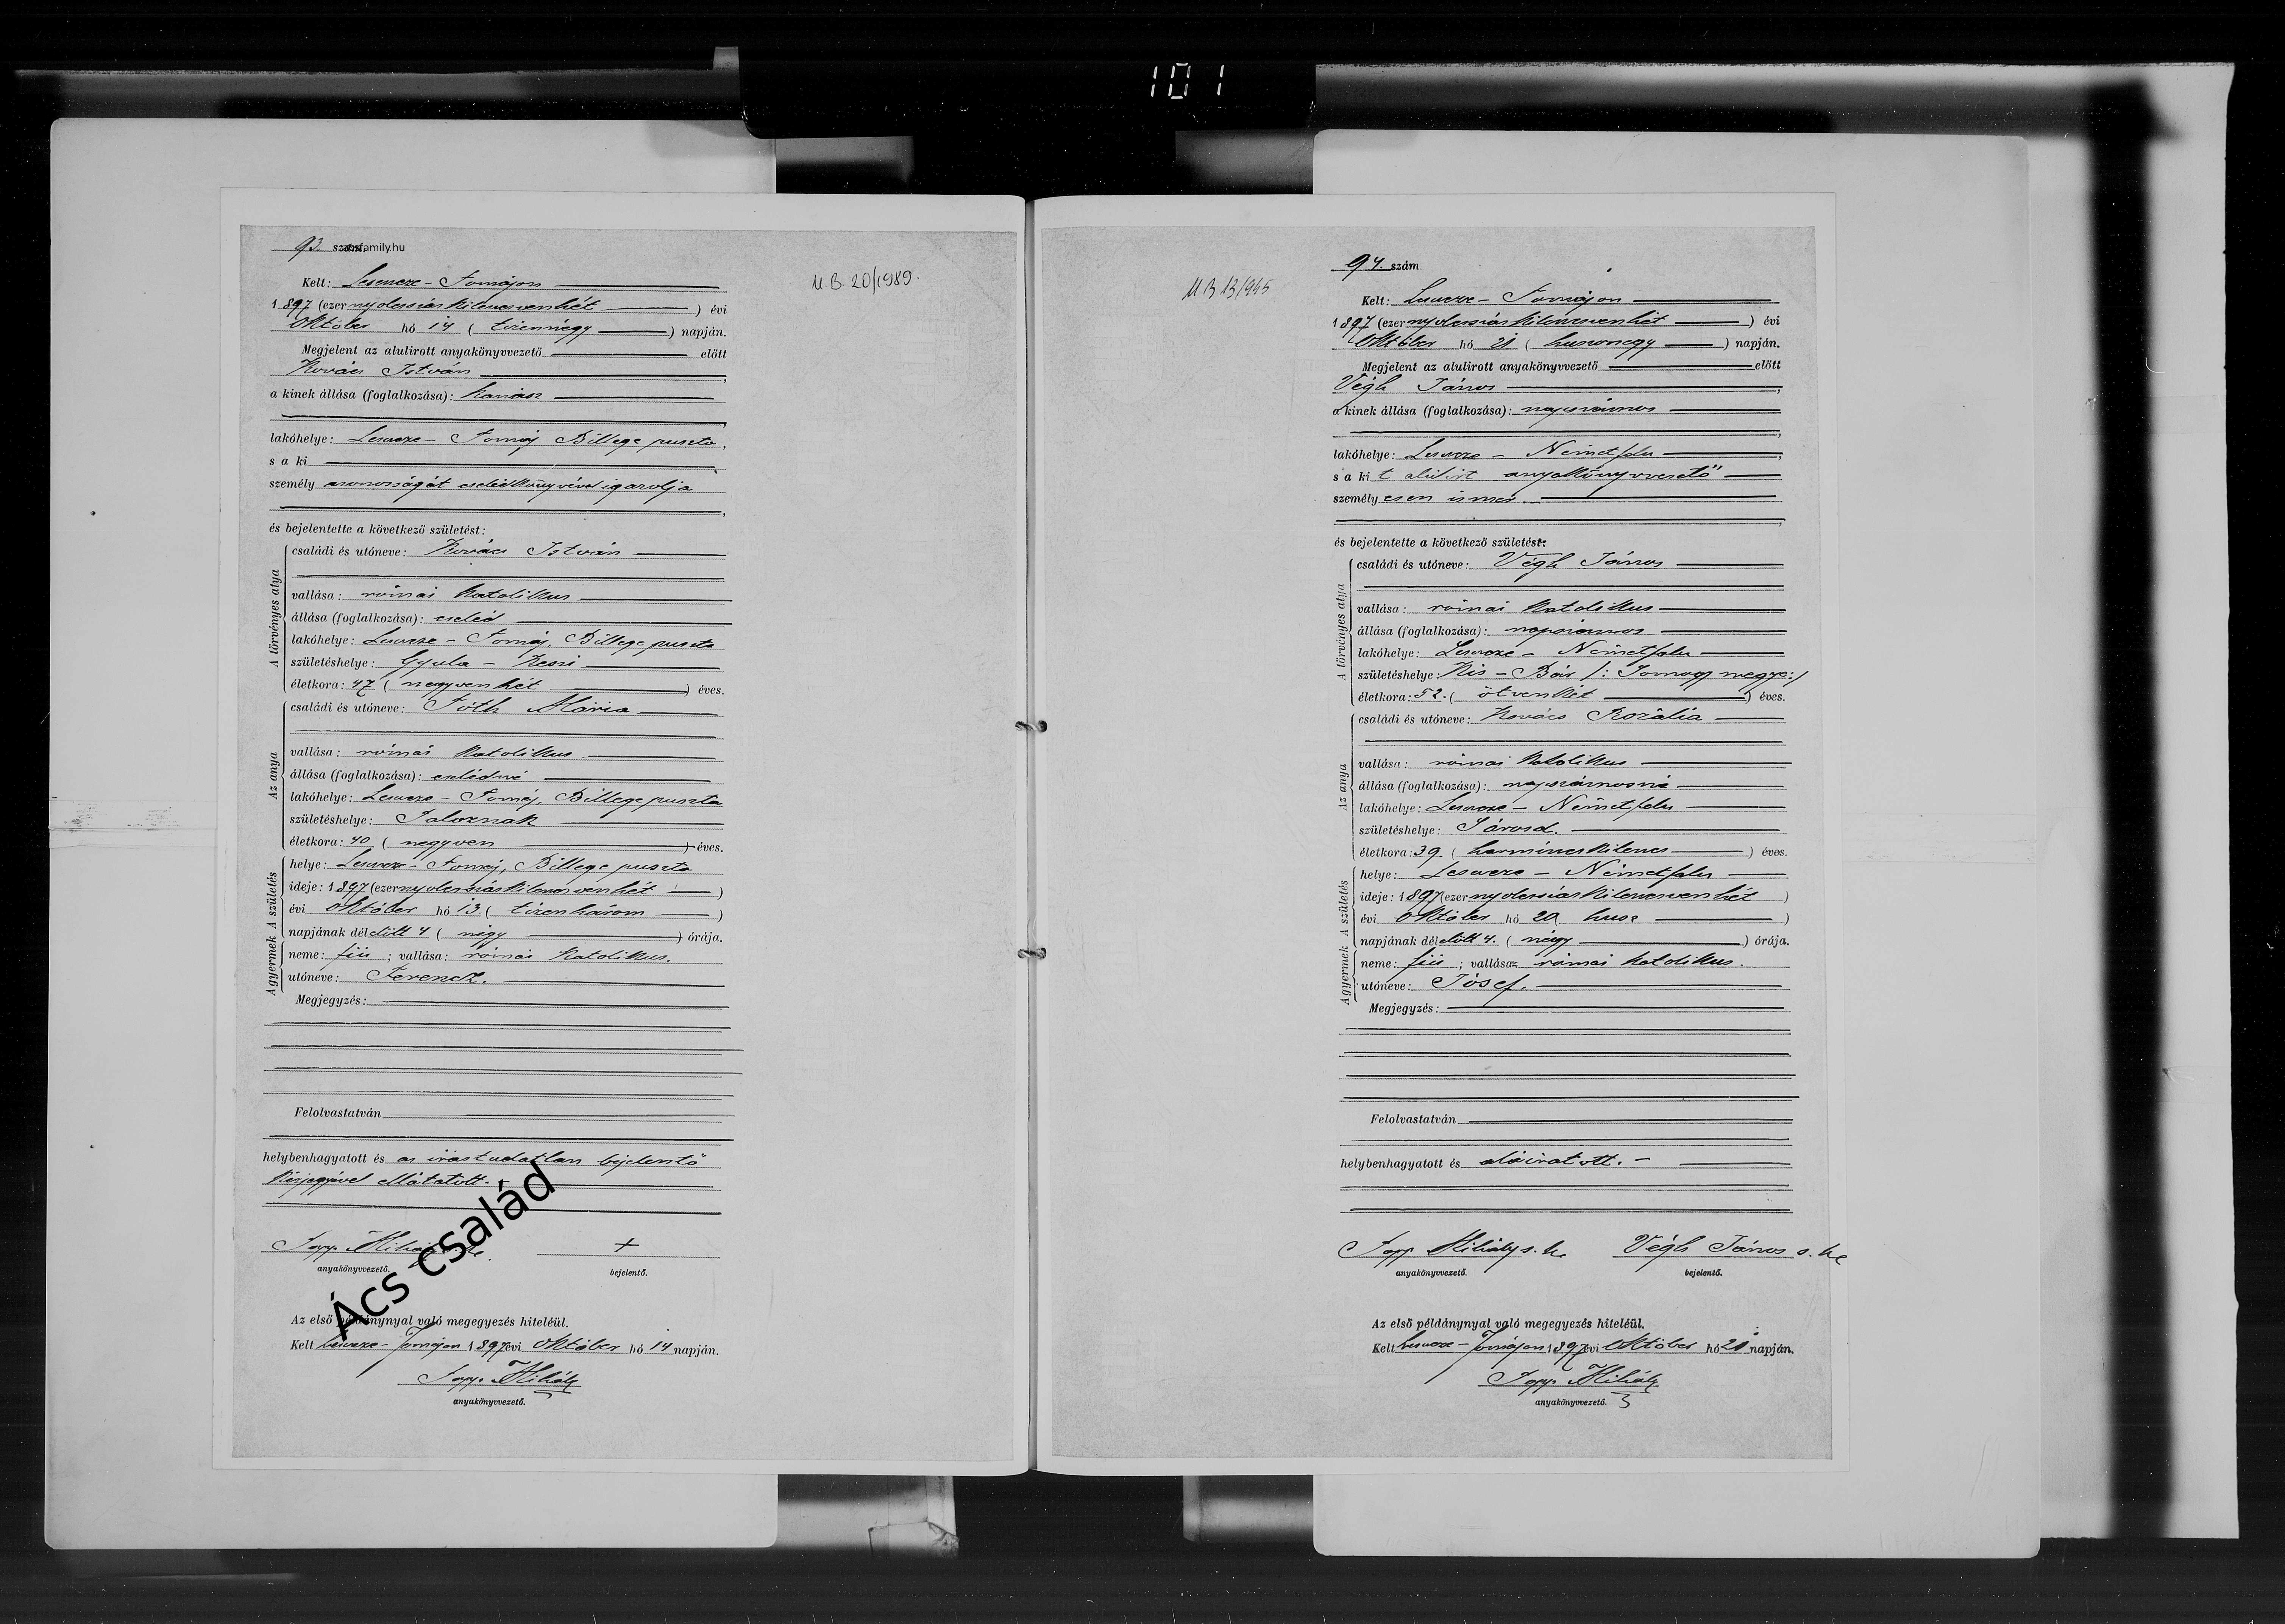 101
93. szám
acsfamily.hu
Kelt: Lesencze-Tomajon
1897 (ezer nyolcszázkilenczvenhét) évi
október hó 14 (tizennégy) napján.
Megjelent az alulirott anyakönyvvezető előtt
Kovács István,
a kinek állása (foglalkozása): kanász
lakóhelye: Lesencze-Tomaj Billege puszta,
s a ki
személy azonosságát cselédkönyvével igazolja
és bejelentette a következő születést:
A törvényes atya
családi és utóneve: Kovács István
vallása: római katolikus
állása (foglalkozása): cseléd
lakóhelye: Lesencze-Tomaj, Billege puszta
születéshelye: Gyula-Keszi
életkora: 47 (negyvenhét) éves.
Az anya
családi és utóneve: Tóth Mária
vallása: római katolikus
állása (foglalkozása): cselédné
lakóhelye: Lesencze-Tomaj, Billege puszta
születéshelye: Taloznak
életkora: 40 (negyven) éves.
A születés
helye: Lesencze-Tomaj, Billege puszta
ideje: 1897 (ezer nyolcszázkilenczvenhét)
évi október hó 13. (tizenhárom)
napjának délelőtt 4 (négy) órája.
A gyermek
neme: fiú; vallása: római katolikus.
utóneve: Ferencz.
Megjegyzés:
Felolvastatván
helybenhagyatott és az irástudatlan bejelentő
kézjegyével ellátatott.
Papp Mihály
+
anyakönyvvezető.
bejelentő.
Ács család
Az első példánynyal való megegyezés hiteléül.
Kelt Lesencze-Tomajon 1897 évi október hó 14 napján.
Papp Mihály
anyakönyvvezető.
U.B. 20/1989.
U B 13/945
94. szám
Kelt: Lesencze-Tomajon
1897 (ezer nyolcszázkilenczvenhét) évi
október hó 21 (huszonegy) napján.
Megjelent az alulirott anyakönyvvezető előtt
Végh János,
a kinek állása (foglalkozása): napszámos
lakóhelye: Lesencze-Németfalu,
s a kit alulirt anyakönyvvezető
személyesen ismer.
és bejelentette a következő születést:
A törvényes atya
családi és utóneve: Végh János
vallása: római katolikus
állása (foglalkozása): napszámos
lakóhelye: Lesencze-Németfalu
születéshelye: Kis-Bár /: Somogy megye:/
életkora: 52. (ötvenkét) éves.
Az anya
családi és utóneve: Kovács Rozália
vallása: római katolikus
állása (foglalkozása): napszámosné
lakóhelye: Lesencze-Németfalu
születéshelye: Sárosd.
életkora: 39. (harminczkilencz) éves.
A születés
helye: Lesencze-Németfalu
ideje: 1897 (ezer nyolcszázkilenczvenhét)
évi október hó 20 husz)
napjának délelőtt 4. (négy) órája.
A gyermek
neme: fiú; vallása: római katolikus.
utóneve: József.
Megjegyzés:
Felolvastatván
helybenhagyatott és aláiratott.
Papp Mihály s. k.
Végh János s. k.
anyakönyvvezető.
bejelentő.
Az első példánynyal való megegyezés hiteléül.
Kelt Lesencze-Tomajon 1897 évi október hó 21 napján.
Papp Mihály
anyakönyvvezető.